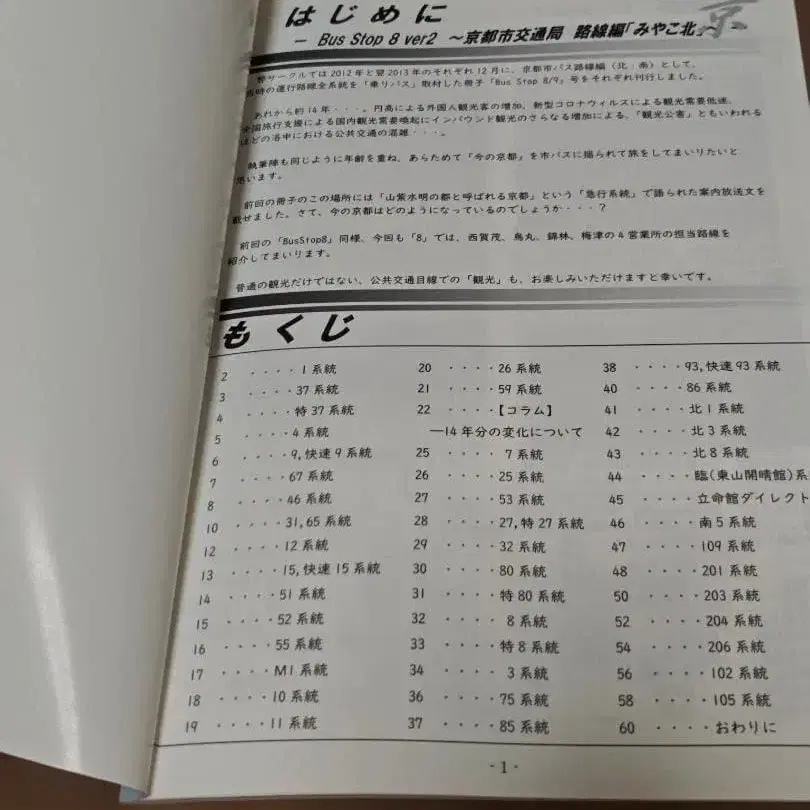 はじめに
京
− Bus Stop 8 ver2 ～京都市交通局 路線編「みやこ北」～ −
弊サークルでは2012年と翌2013年のそれぞれ12月に、京都市バス路線編（北・南）として、
当時の運行路線全系統を「乗りバス」取材した冊子「Bus Stop 8/9」号をそれぞれ刊行しました。
あれから約14年・・・。円高による外国人観光客の増加、新型コロナウィルスによる観光需要低迷、
全国旅行支援による国内観光需要喚起にインバウンド観光のさらなる増加による、「観光公害」ともいわれる
ほどの洛中における公共交通の混雑・・・。
執筆陣も同じように年齢を重ね、あらためて「今の京都」を市バスに揺られて旅をしてまいりたいと
思います。
前回の冊子のこの場所には「山紫水明の都と呼ばれる京都」という「急行系統」で語られた案内放送文を
載せました。さて、今の京都はどのようになっているのでしょうか・・・？
前回の「BusStop8」同様、今回も「8」では、西賀茂、烏丸、錦林、梅津の4営業所の担当路線を
紹介してまいります。
普通の観光だけではない、公共交通目線での「観光」も、お楽しみいただけますと幸いです。
もくじ
2 ・・・・1系統
3 ・・・・37系統
4 ・・・・特37系統
5 ・・・・4系統
6 ・・・・9,快速9系統
7 ・・・・67系統
8 ・・・・46系統
10 ・・・・31,65系統
12 ・・・・12系統
13 ・・・・15,快速15系統
14 ・・・・51系統
15 ・・・・52系統
16 ・・・・55系統
17 ・・・・M1系統
18 ・・・・10系統
19 ・・・・11系統
20 ・・・・26系統
21 ・・・・59系統
22 ・・・・【コラム】
―14年分の変化について
25 ・・・・7系統
26 ・・・・25系統
27 ・・・・53系統
28 ・・・・27,特27系統
29 ・・・・32系統
30 ・・・・80系統
31 ・・・・特80系統
32 ・・・・8系統
33 ・・・・特8系統
34 ・・・・3系統
36 ・・・・75系統
37 ・・・・85系統
38 ・・・・93,快速93系統
40 ・・・・86系統
41 ・・・・北1系統
42 ・・・・北3系統
43 ・・・・北8系統
44 ・・・・臨(東山開晴館)系
45 ・・・・立命館ダイレクト
46 ・・・・南5系統
47 ・・・・109系統
48 ・・・・201系統
50 ・・・・203系統
52 ・・・・204系統
54 ・・・・206系統
56 ・・・・102系統
58 ・・・・105系統
60 ・・・・おわりに
- 1 -